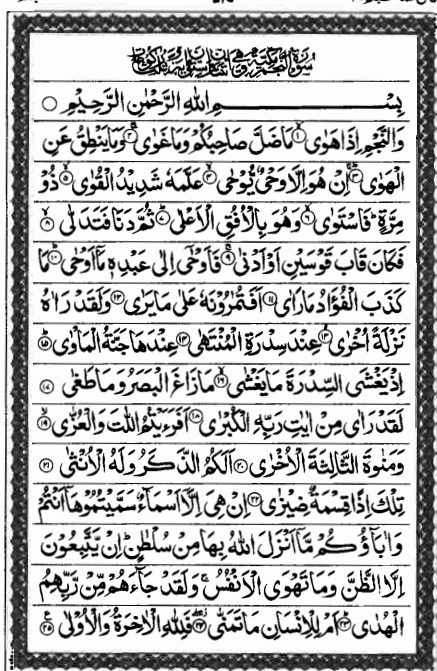 بِسْمِ اللهِ الرَّحْمٰنِ الرَّحِيْمِ ○
وَالنَّجْمِ اِذَا هَوٰى ۱ مَا ضَلَّ صَاحِبُكُمْ وَمَا غَوٰى ۲ وَمَا يَنْطِقُ عَنِ
الْهَوٰى ۳ اِنْ هُوَ اِلَّا وَحْىٌ يُّوْحٰى ۴ عَلَّمَهٗ شَدِيْدُ الْقُوٰى ۵ ذُوْ
مِرَّةٍ فَاسْتَوٰى ۶ وَهُوَ بِالْاُفُقِ الْاَعْلٰى ۷ ثُمَّ دَنَا فَتَدَلّٰى ۸
فَكَانَ قَابَ قَوْسَيْنِ اَوْ اَدْنٰى ۹ فَاَوْحٰى اِلٰى عَبْدِهٖ مَآ اَوْحٰى ۱۰ مَا
كَذَبَ الْفُؤَادُ مَا رَاٰى ۱۱ اَفَتُمٰرُوْنَهٗ عَلٰى مَا يَرٰى ۱۲ وَلَقَدْ رَاٰهُ
نَزْلَةً اُخْرٰى ۱۳ عِنْدَ سِدْرَةِ الْمُنْتَهٰى ۱۴ عِنْدَهَا جَنَّةُ الْمَاْوٰى ۱۵
اِذْ يَغْشَى السِّدْرَةَ مَا يَغْشٰى ۱۶ مَا زَاغَ الْبَصَرُ وَمَا طَغٰى ۱۷
لَقَدْ رَاٰى مِنْ اٰيٰتِ رَبِّهِ الْكُبْرٰى ۱۸ اَفَرَءَيْتُمُ اللّٰتَ وَالْعُزّٰى ۱۹
وَمَنٰوةَ الثَّالِثَةَ الْاُخْرٰى ۲۰ اَلَكُمُ الذَّكَرُ وَلَهُ الْاُنْثٰى ۲۱
تِلْكَ اِذًا قِسْمَةٌ ضِيْزٰى ۲۲ اِنْ هِىَ اِلَّآ اَسْمَآءٌ سَمَّيْتُمُوْهَآ اَنْتُمْ
وَاٰبَآؤُكُمْ مَّآ اَنْزَلَ اللهُ بِهَا مِنْ سُلْطٰنٍ اِنْ يَّتَّبِعُوْنَ
اِلَّا الظَّنَّ وَمَا تَهْوَى الْاَنْفُسُ وَلَقَدْ جَآءَهُمْ مِّنْ رَّبِّهِمُ
الْهُدٰى ۲۳ اَمْ لِلْاِنْسَانِ مَا تَمَنّٰى ۲۴ فَلِلّٰهِ الْاٰخِرَةُ وَالْاُوْلٰى ۲۵